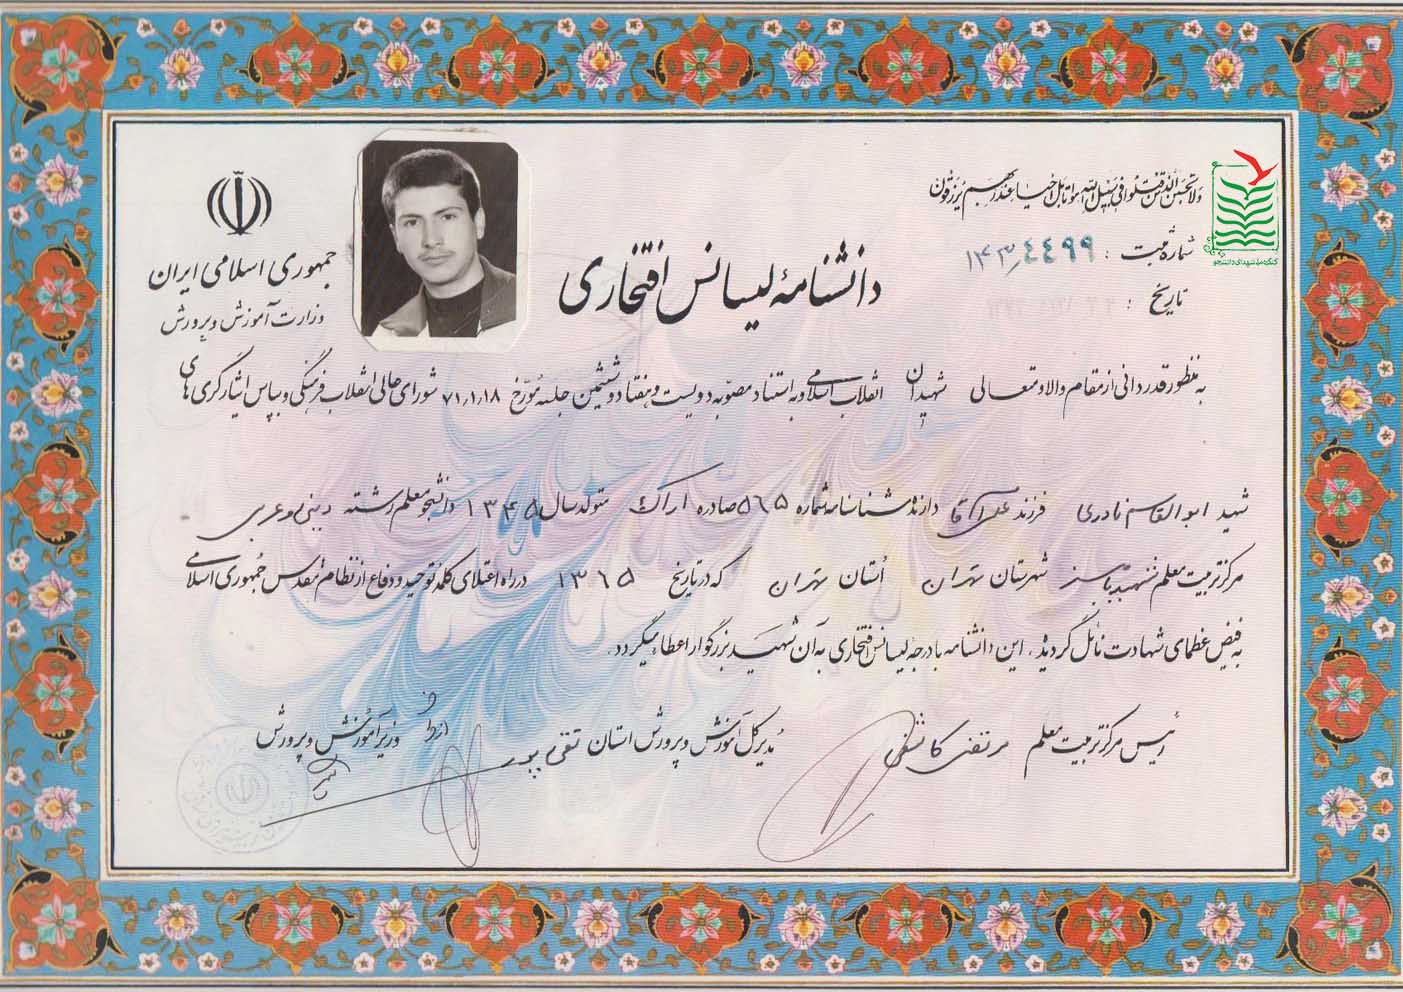 ولا تحسبن الذین قتلوا فی سبیل الله امواتا بل احیاء عند ربهم یرزقون
کنگره ملی شهدای دانشجو
شماره ثبت : ۱۴۳٫۴۴۹۹
تاریخ :
جمهوری اسلامی ایران
وزارت آموزش و پرورش
دانشنامهٔ لیسانس افتخاری
به منظور قدردانی از مقام والا و متعالی شهیدان انقلاب اسلامی و به استناد مصوبه دویست و هفتاد و ششمین جلسه مورخ ۷۱٫۱٫۱۸ شورای عالی انقلاب فرهنگی و بپاس ایثارگری های
شهید ابوالقاسم نادری فرزند علی آقا دارنده شناسنامه شماره ۵۶۵ صادره اراک متولد سال ۱۳۴۵ دانشجو معلم رشته دینی و عربی
مرکز تربیت معلم شهید باهنر شهرستان تهران استان تهران که در تاریخ ۱۳۶۵ در راه اعتلای کلمه توحید و دفاع از نظام مقدس جمهوری اسلامی
به فیض عظمای شهادت نائل گردیده ، این دانشنامه با درجه لیسانس افتخاری به آن شهید بزرگوار اعطاء میگردد.
رئیس مرکز تربیت معلم مرتضی کاشفی
مدیر کل آموزش و پرورش استان تقی پور
از طرف وزیر آموزش و پرورش